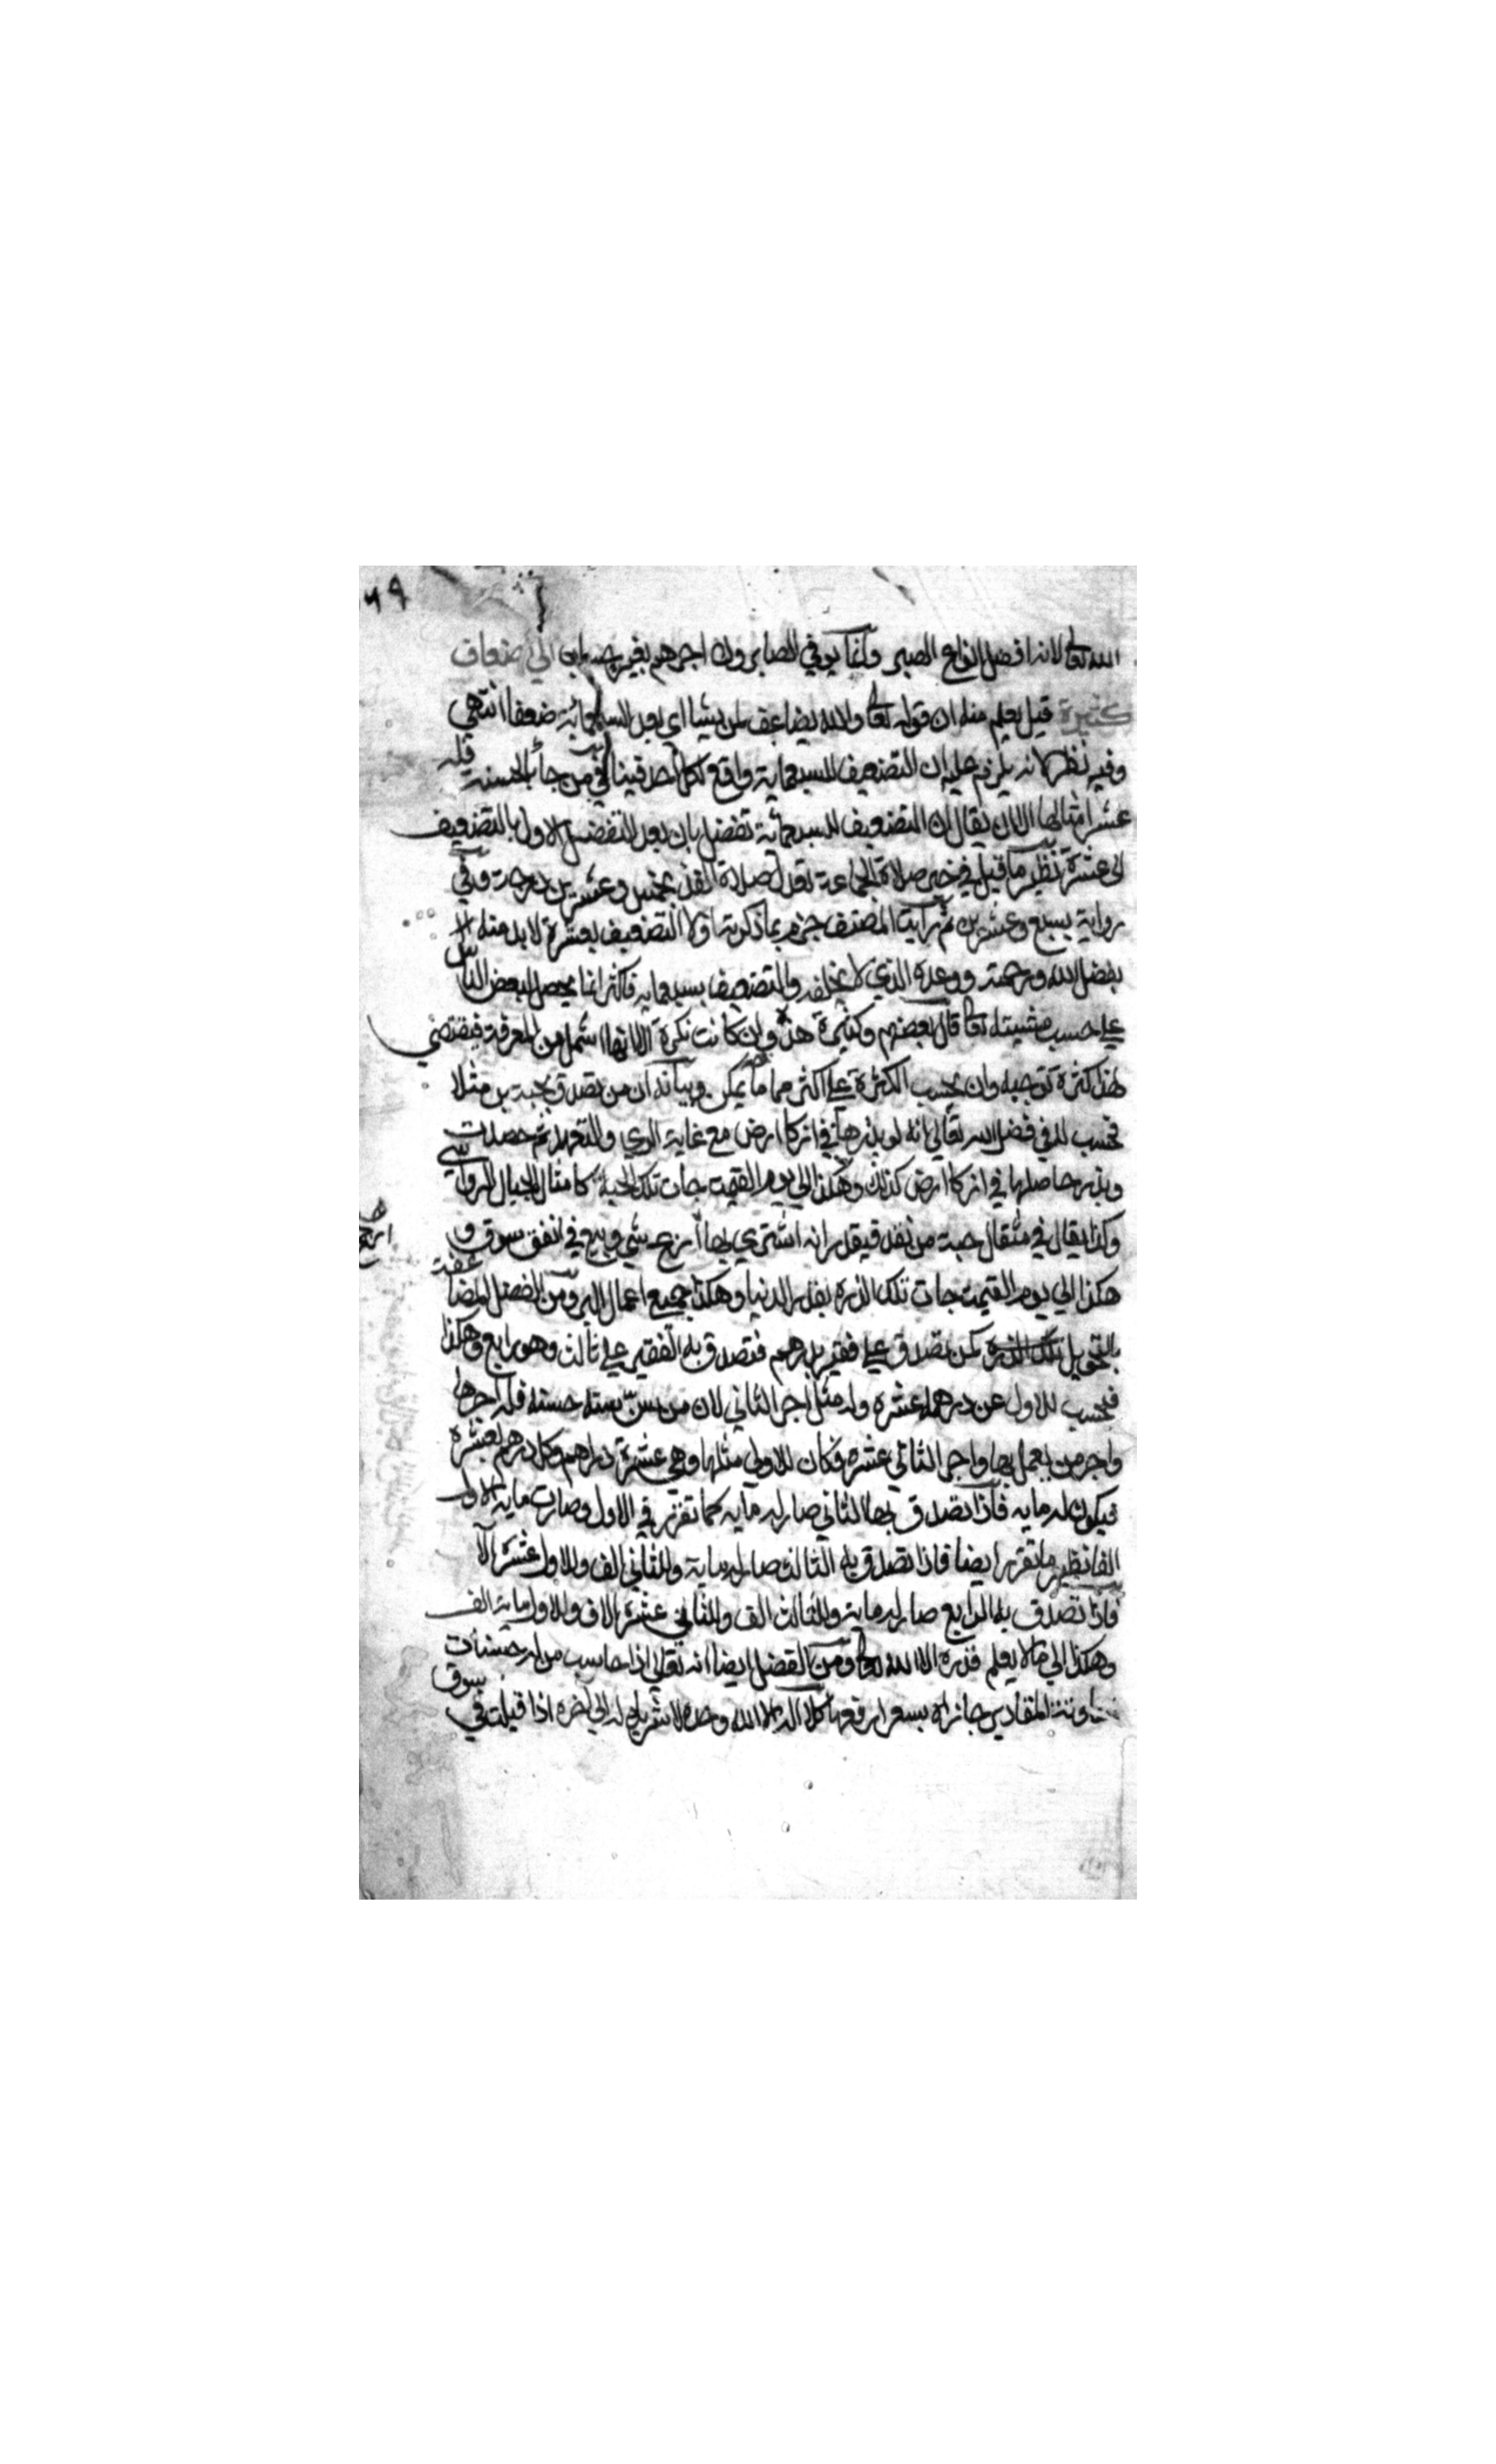 الله تعالى لانه افضل انواع الصبر وانما يوفي الصابرون اجرهم بغير حساب الي اضعاف
كثيرة قيل يعلم منه ان قوله تعالى والله يضاعف لمن يشا اي بعد السبعمائة ضعفا انتهي
وفيه نظر لانه يلزم عليه ان التضعيف للسبعماية واقع لكل احد فينافي من جأ بالحسنة فله
عشر امثالها الا ان يقال ان التضعيف للسبعمائة تفضل بان بعد التفضل الاول بالتضعيف
الى عشرة نظير ما قيل في خبر صلاة الجماعة تعدل صلاة الفذ بخمس وعشرين درجة وفي
رواية بسبع وعشرين ثم رايت المصنف جزم بما ذكرته اولا التضعيف بعشرة لابد منه الا
بفضل الله ورحمته ووعده الذي لا يخلفه والتضعيف بسبعمايه فاكثر انما يحصل لبعض الناس
علي حسب مشيته تعالى قال بعضهم وكثيرة هذه وان كانت نكرة الا انها اشمل من المعرفة فيقتضي
لهذا كثرة توجبه وان يحسب الكثرة علي اكثر مما يمكن وبيانه ان من تصدق بحبة بر مثلا
فحسب له في فضل الله تعالي انه لو بذرها في ازكا ارض مع غاية الري والتعهد ثم حصدت
وبذر حاصلها في ازكا ارض كذلك وهكذا الي يوم القيمة جات تلك الحبة كامثال الجبال الرواسي
وكذا يقال في مثقال حبة من نقد فيقدر انه اشتري بها اربح شي وبيع في انفق سوق و
هكذا الي يوم القيمة جات تلك الذره بقدر الدنيا وهكذا جميع اعمال البر ومن الفضل المضاعفة
بالتحويل كمن تصدق علي فقير بدرهم فتصدق به الفقير علي ثالث وهو رابع وهكذا
فيحسب للاول عن درهمه عشره وله مثل اجر الثاني لان من سن سنة حسنه فله اجرها
واجر من يعمل بها واجر الثاني عشره فكان للاول مثلها وهي عشرة دراهم وكل درهم بعشرة
فيكون له مايه فاذا تصدق بها الثاني صار له مايه كما تقرر في الاول وصارت ماية الاول
الفا نظير ما تقرر ايضا فاذا تصدق به الثالث صار له ماية وللثاني الف وللاول عشرة الا
فاذا تصدق به الرابع صار له ماية وللثالث الف وللثاني عشرة الاف وللاول ماية الف
وهكذا الي ما لا يعلم قدره الا الله تعالى ومن الفضل ايضا انه تعالي اذا حاسب من له حسنات
متفاوتة المقادير جازاه بسعر ارفعها كلا اله الا الله وحده لا شريك له الي اخره اذا قيلت في سوق